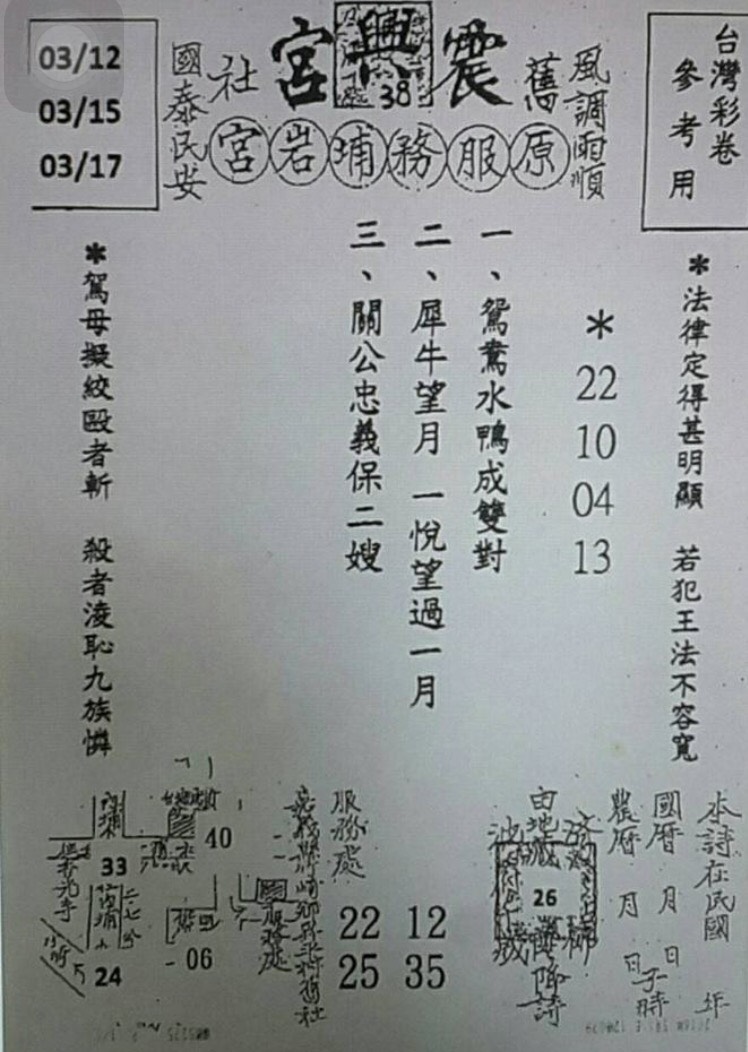 台灣彩卷
參考用
風調雨順
舊
震興宮
38
社
國泰民安
原服務埔岩宮
03/12
03/15
03/17
*法律定得甚明顯 若犯王法不容寬
*
22
10
04
13
一、鴛鴦水鴨成雙對
二、犀牛望月 一悅望過一月
三、關公忠義保二嫂
*駕母擬絞毆者斬 殺者凌恥九族憐
本詩在民國 年
國曆 月 日
農曆 月 日子時
26
降詩
服務處
22 12
25 35
40
33
06
24
服務處